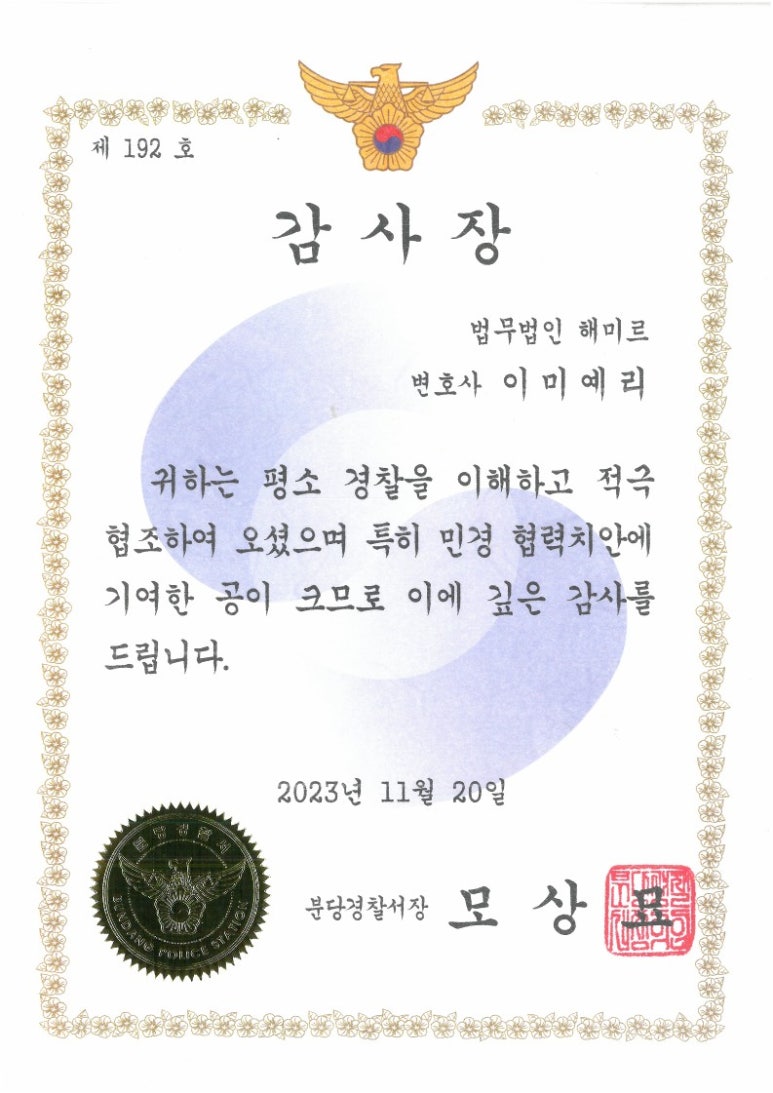 제 192 호
감 사 장
법무법인 해미르
변호사 이 미 예 리
귀하는 평소 경찰을 이해하고 적극
협조하여 오셨으며 특히 민경 협력치안에
기여한 공이 크므로 이에 깊은 감사를
드립니다.
2023년 11월 20일
분당경찰서
BUNDANG POLICE STATION
분당경찰서장 모 상 묘